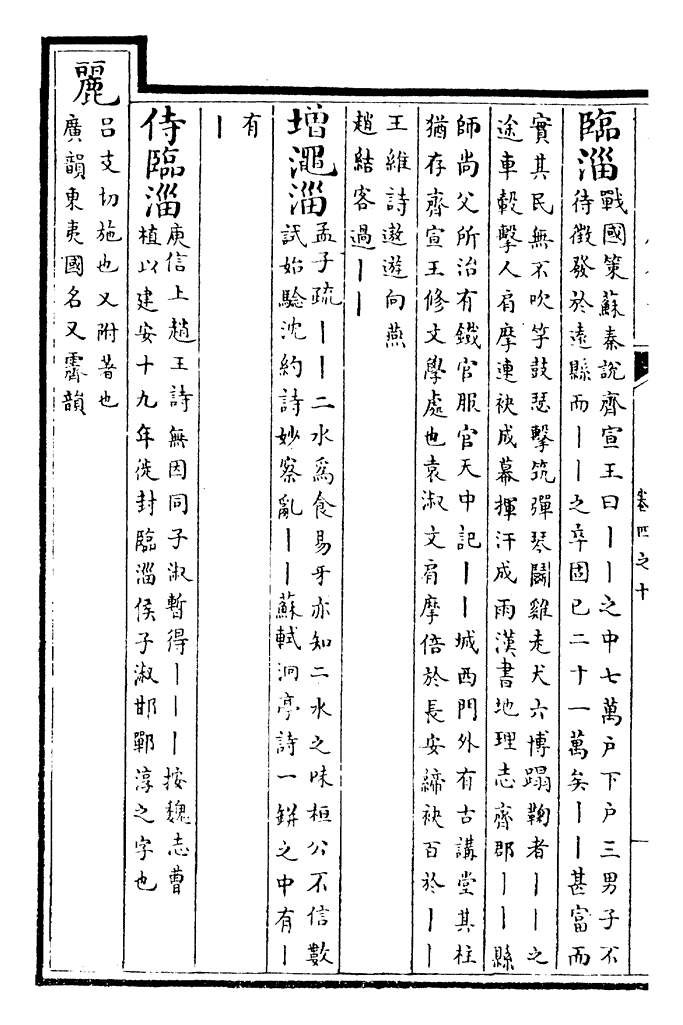 卷四之十
臨淄
戰國策蘇秦說齊宣王曰丨丨之中七萬戶下戶三男子不
待徵發於遠縣而丨丨之卒固已二十一萬矣丨丨甚富而
實其民無不吹竽鼓瑟擊筑彈琴鬭雞走犬六博蹋鞠者丨丨之
途車轂擊人肩摩連袂成幕揮汗成雨漢書地理志齊郡丨丨縣
師尚父所治有鐵官服官天中記丨丨城西門外有古講堂其柱
猶存齊宣王修文學處也袁淑文肩摩倍於長安締袂百於丨丨
王維詩遨遊向燕
趙結客過丨丨
增澠淄
孟子疏丨丨二水爲食易牙亦知二水之味桓公不信數
試始驗沈約詩妙察亂丨丨蘇軾泂亭詩一缾之中有丨
有
丨
侍臨淄
庾信上趙王詩無因同子淑暫得丨丨丨按魏志曹
植以建安十九年徙封臨淄侯子淑邯鄲淳之字也
麗
呂支切施也又附著也
廣韻東夷國名又霽韻